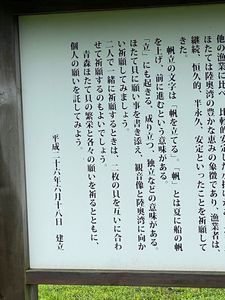 他の業種に比べ、比較的安定し
ほたては陸奥湾の豊かな恵みの象徴であり、漁業者は、
継続、恒久的、半永久、安定といったことを祈願して
きた。
帆立の文字は「帆を立てる」、「帆」とは夏に船の帆
を上げ、前に進むという意味がある。
「立」にも起きる、成り立つ、独立などの意味がある。
ほたて貝に願い事を書き添え、観音像と陸奥湾に向か
い祈願してみましょう。
二人で一緒に祈願するときは、二枚の貝を互いに合わ
せて祈願するのもよいでしょう。
青森ほたて貝の繁栄と各々の願いを祈るとともに、
個人の願いを託してみよう。
平成二十六年六月十八日　建立